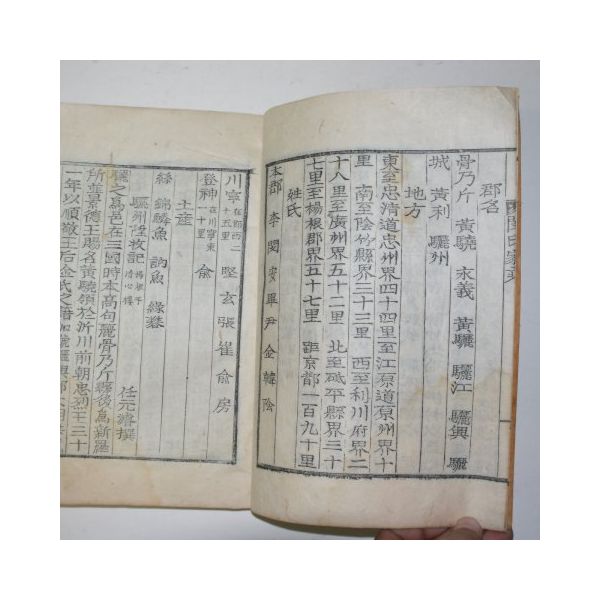 郡名
骨乃斤 黃驍 永義 黃驪 驪江 驪興 驪
城 黃利 驪州
地方
東至忠淸道忠州界四十四里至江原道原州界十
里 南至陰竹縣界三十三里 西至利川府界二
十八里至廣州界五十二里 北至砥平縣界三十
七里至楊根郡界五十七里 距京都一百九十里
姓氏
本郡 李 閔 安 畢 尹 金 韓 陰
川寧在郡西二十五里 堅 玄 張 崔 俞 房
登神在川寧東一十里 俞
土産
絲 錦鱗魚 訥魚
驪州 任元濬撰
驪之爲邑在三國時本高句麗骨乃斤縣後爲新羅
所並景德王賜名黃驍領於沂川前朝忠烈王三十
一年以順敬王后金氏之